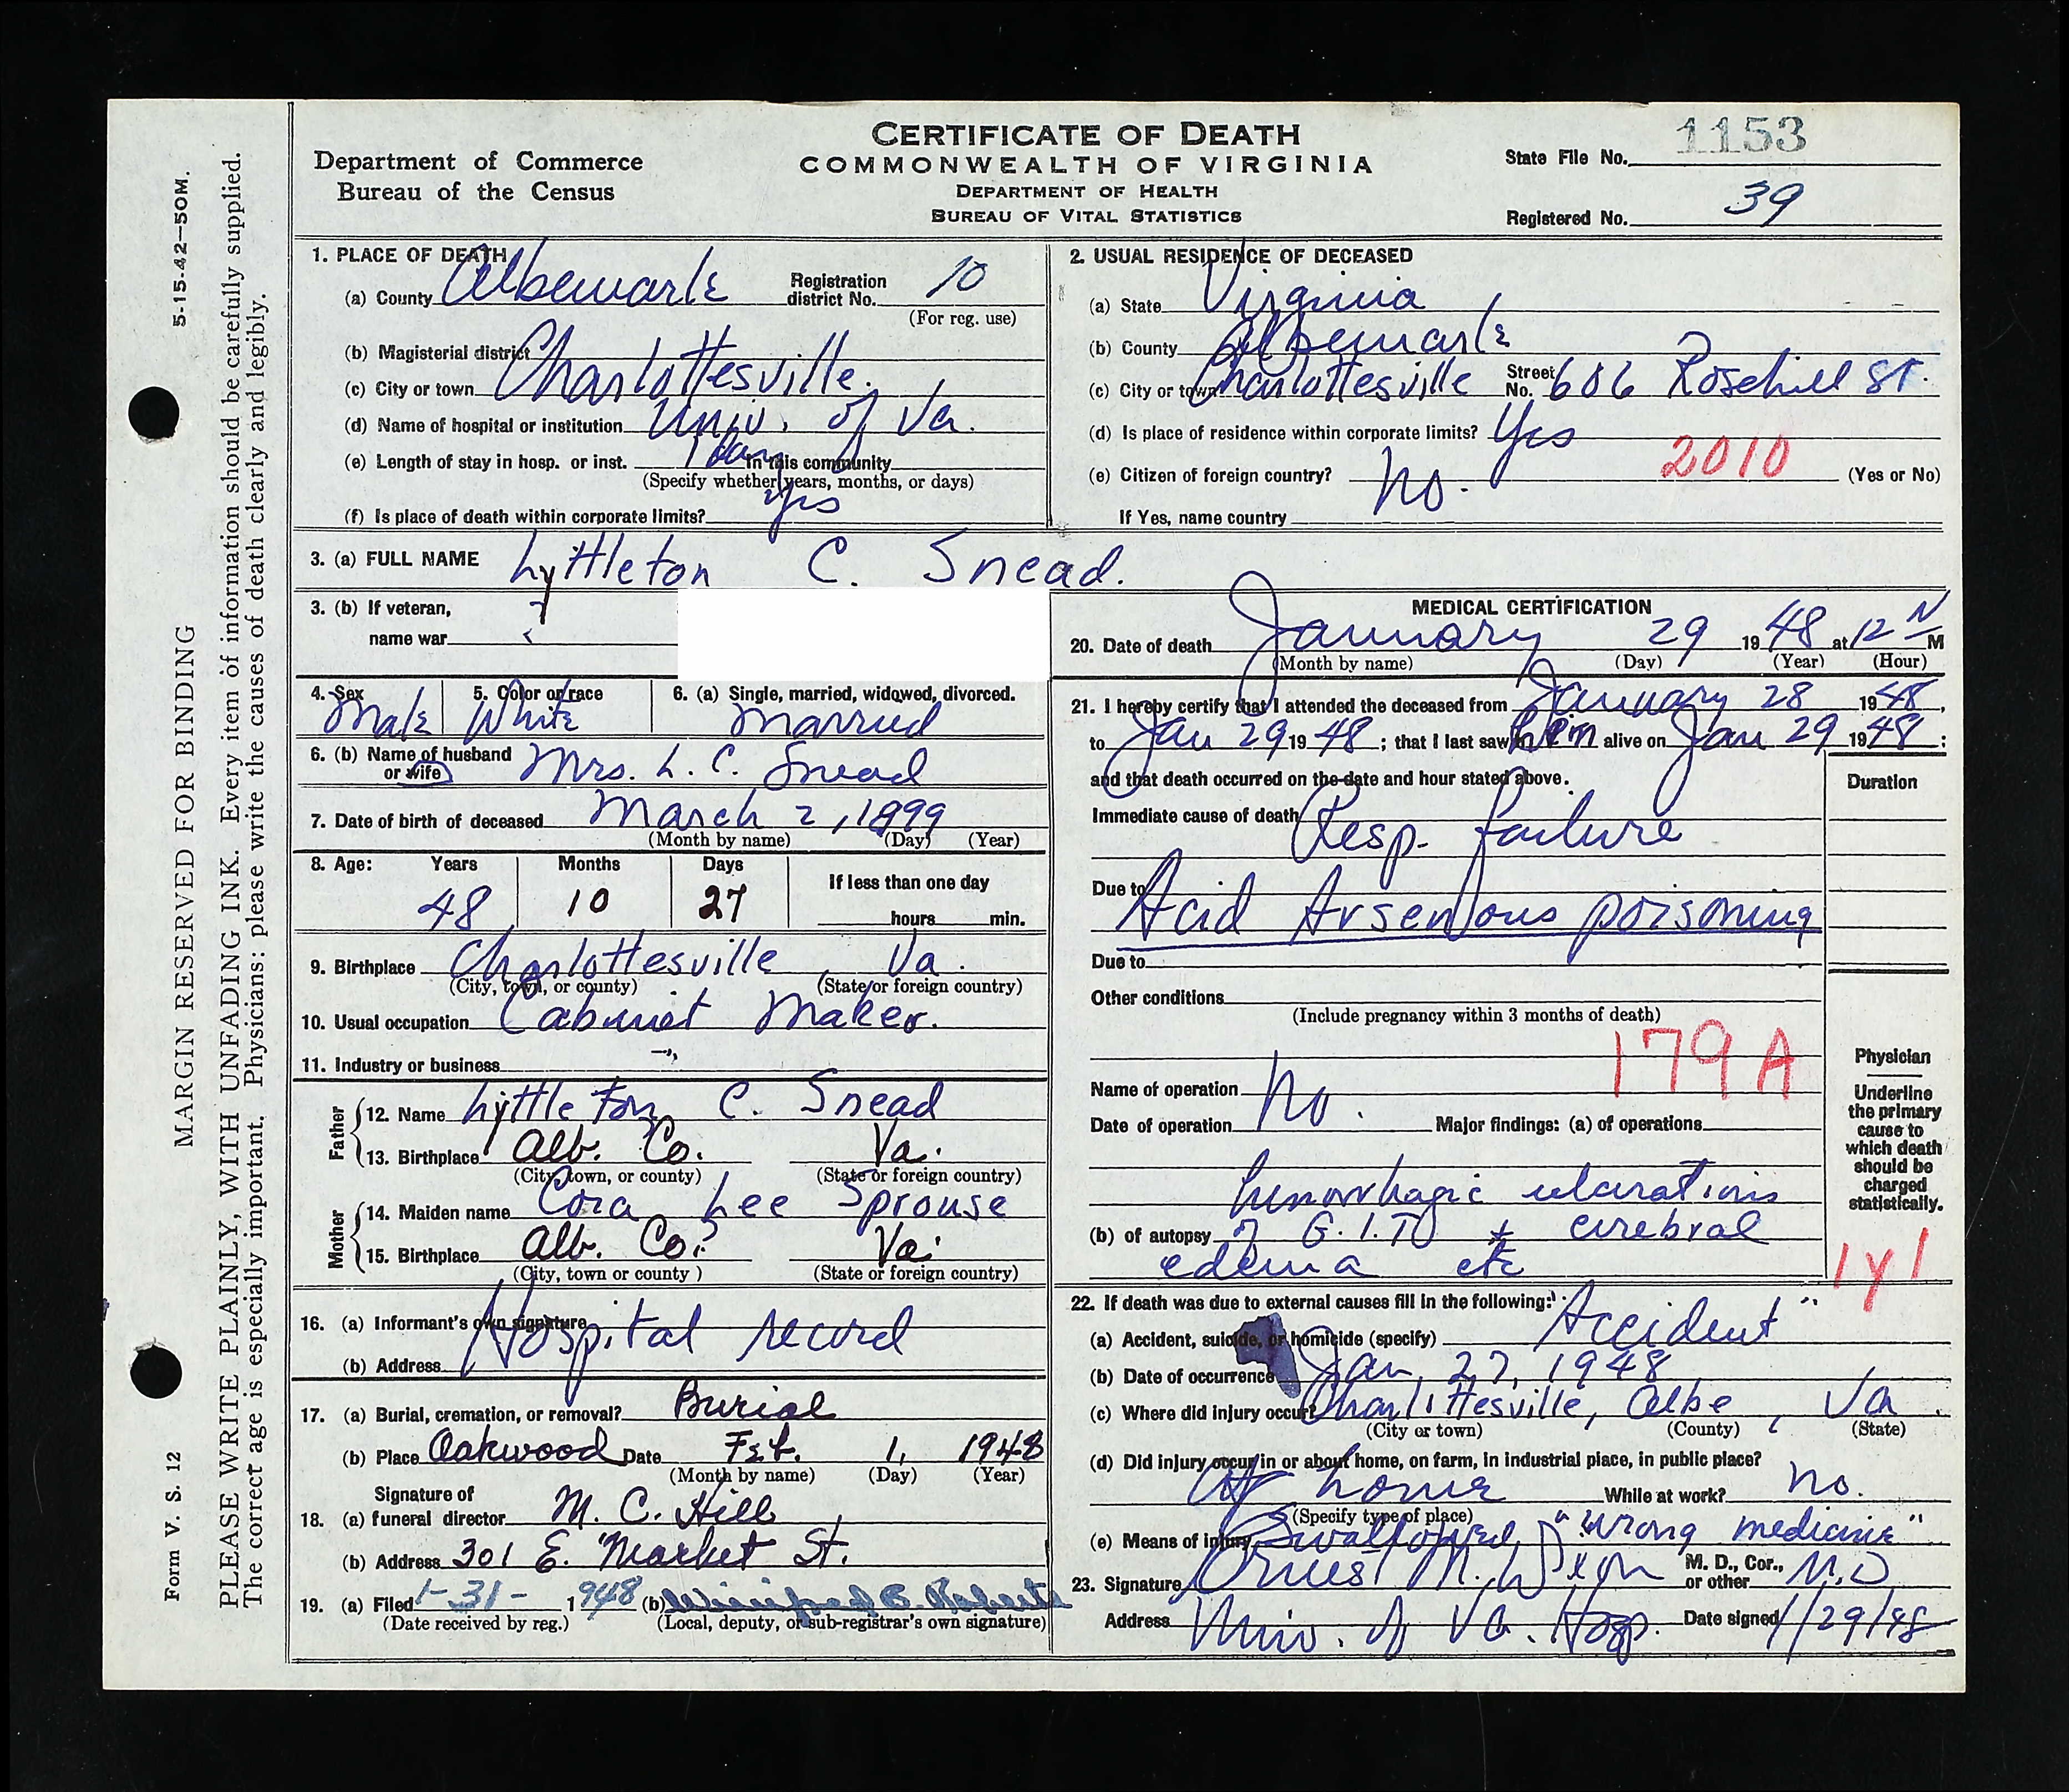 CERTIFICATE OF DEATH
COMMONWEALTH OF VIRGINIA
DEPARTMENT OF HEALTH
BUREAU OF VITAL STATISTICS
Department of Commerce
Bureau of the Census
State File No. 1153
Registered No. 39
5-15-42—50M.
MARGIN RESERVED FOR BINDING
PLEASE WRITE PLAINLY, WITH UNFADING INK. Every item of information should be carefully supplied.
The correct age is especially important. Physicians: please write the causes of death clearly and legibly.
Form V. S. 12
1. PLACE OF DEATH
(a) County Albemarle Registration district No. 10
(For reg. use)
(b) Magisterial district
(c) City or town Charlottesville.
(d) Name of hospital or institution Univ. of Va.
(e) Length of stay in hosp. or inst. 1 day In this community
(Specify whether years, months, or days)
(f) Is place of death within corporate limits? Yes
2. USUAL RESIDENCE OF DECEASED
(a) State Virginia
(b) County Albemarle
(c) City or town Charlottesville Street No. 606 Rosehill St.
(d) Is place of residence within corporate limits? Yes
2010
(e) Citizen of foreign country? No. (Yes or No)
If Yes, name country
3. (a) FULL NAME Lyttleton C. Snead.
3. (b) If veteran,
name war ?
4. Sex Male
5. Color or race White
6. (a) Single, married, widowed, divorced. Married
6. (b) Name of husband or wife Mrs. L. C. Snead
7. Date of birth of deceased March 2, 1899
(Month by name) (Day) (Year)
8. Age: Years Months Days
48 10 27
If less than one day
hours min.
9. Birthplace Charlottesville, Va.
(City, town, or county) (State or foreign country)
10. Usual occupation Cabinet Maker.
11. Industry or business
Father
12. Name Lyttleton C. Snead
13. Birthplace Alb. Co. Va.
(City, town, or county) (State or foreign country)
Mother
14. Maiden name Cora Lee Sprouse
15. Birthplace Alb. Co. Va.
(City, town or county) (State or foreign country)
16. (a) Informant's own signature Hospital record
(b) Address
17. (a) Burial, cremation, or removal? Burial
(b) Place Oakwood Date Feb. 1, 1948
(Month by name) (Day) (Year)
18. (a) Signature of funeral director M. C. Hill
(b) Address 301 E. Market St.
19. (a) Filed 1-31- 1948 (b) Winifred B. Roberts
(Date received by reg.) (Local, deputy, or sub-registrar's own signature)
MEDICAL CERTIFICATION
20. Date of death January 29 1948 at 12 N M
(Month by name) (Day) (Year) (Hour)
21. I hereby certify that I attended the deceased from January 28 1948,
to Jan 29 1948; that I last saw him alive on Jan 29 1948;
and that death occurred on the date and hour stated above.
Duration
Immediate cause of death Resp. failure
Due to Acid Arsenious poisoning
Due to
Other conditions
(Include pregnancy within 3 months of death)
179 A
Name of operation No.
Date of operation Major findings: (a) of operations
hemorrhagic ulcerations
(b) of autopsy of G.I.T. + cerebral
edema etc
Physician
Underline
the primary
cause to
which death
should be
charged
statistically.
1y1
22. If death was due to external causes fill in the following:
(a) Accident, suicide, or homicide (specify) "Accident"
(b) Date of occurrence Jan, 27, 1948
(c) Where did injury occur? Charlottesville, Albe, Va.
(City or town) (County) (State)
(d) Did injury occur in or about home, on farm, in industrial place, in public place?
At home While at work? No.
(Specify type of place)
(e) Means of injury Swallowed "wrong medicine"
23. Signature M. D., Cor., or other M.D
Address Univ. of Va. Hosp. Date signed 1/29/48